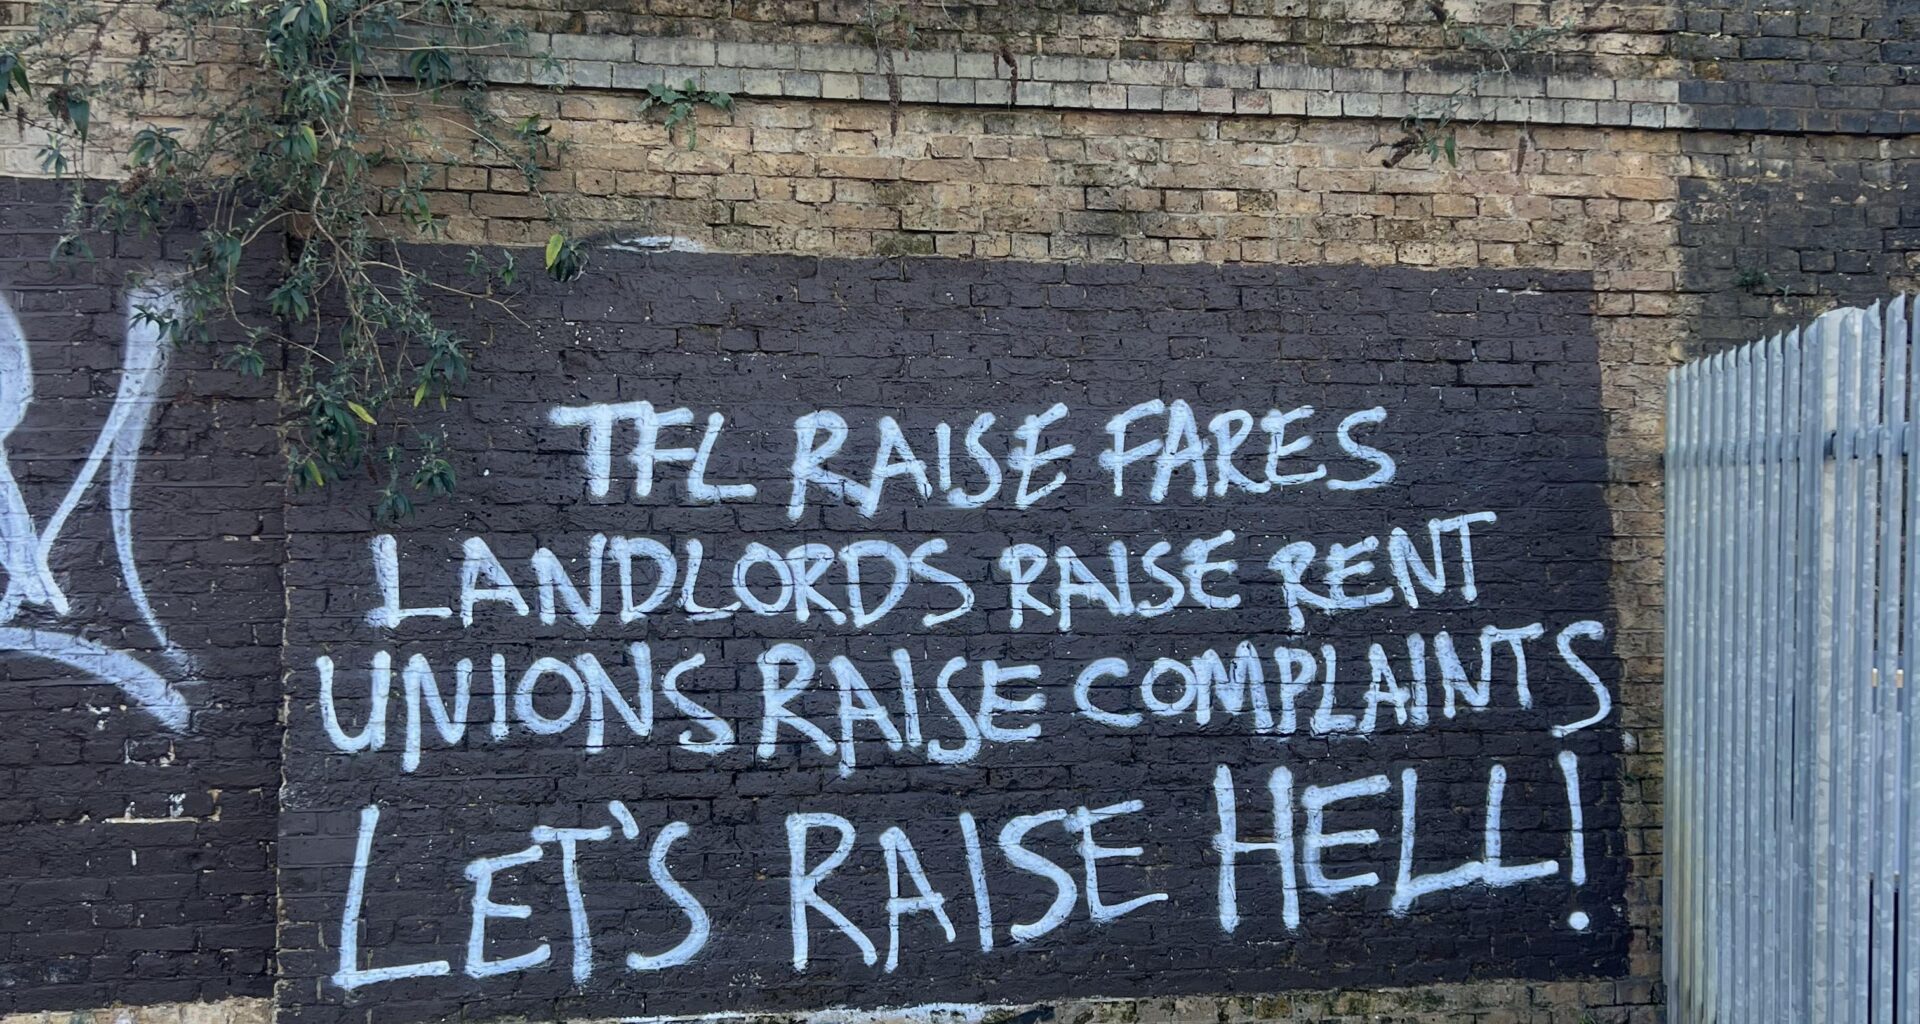 TFL RAISE FARES
LANDLORDS RAISE RENT
UNIONS RAISE COMPLAINTS
LET'S RAISE HELL!